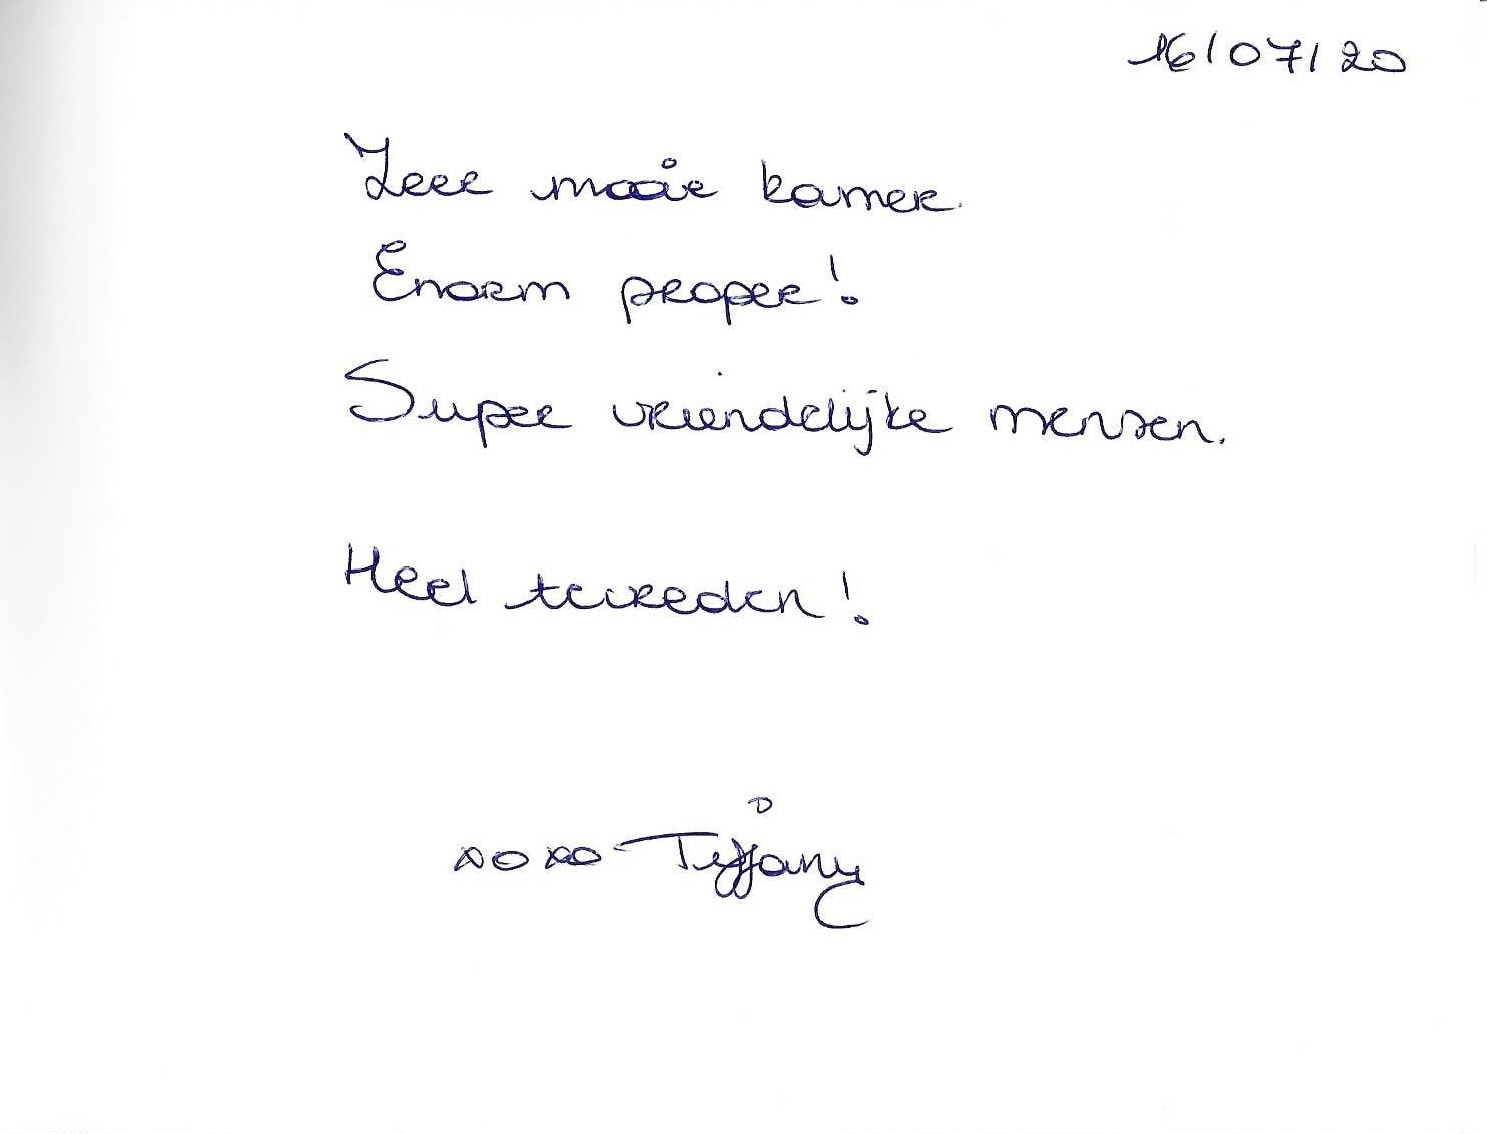 16/07/20
Zeer mooie kamer.
Enorm proper!
Super vriendelijke mensen.
Heel tevreden!
xoxo - Tiffany